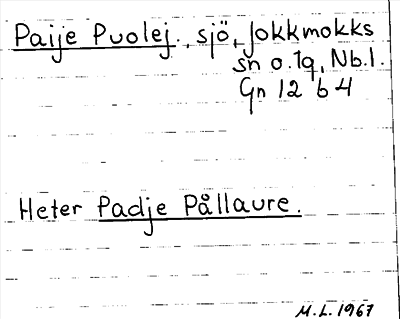 Paije Puolej, sjö, Jokkmokks
sn o. tg, Nb.l.
Gn 12 b 4
Heter Padje Pållaure.
M.L. 1967